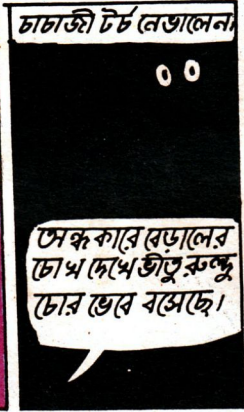 চাচাজী টর্চ নেভালেন।
অন্ধকারে বেড়ালের
চোখ দেখে ভীতু রুল্দু
চোর ভেবে বসেছে।